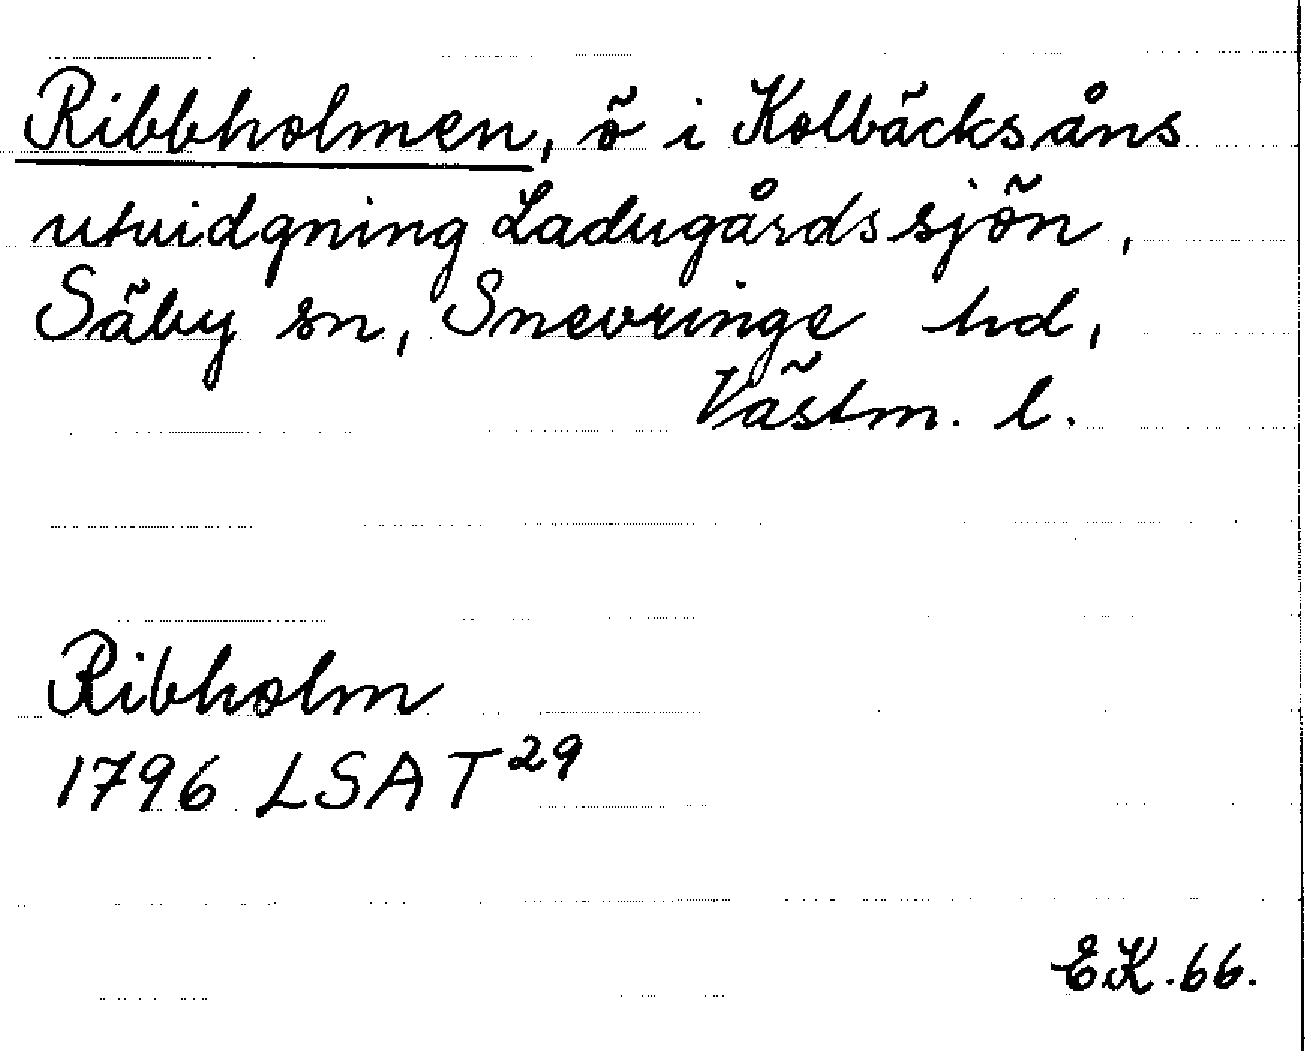 Ribbholmen, ö i Kolbäcksåns
utvidgning Ladugårdssjön,
Säby sn, Snevringe hd,
Västm. l.
Ribholm
1796 LSA T 29
EK.66.